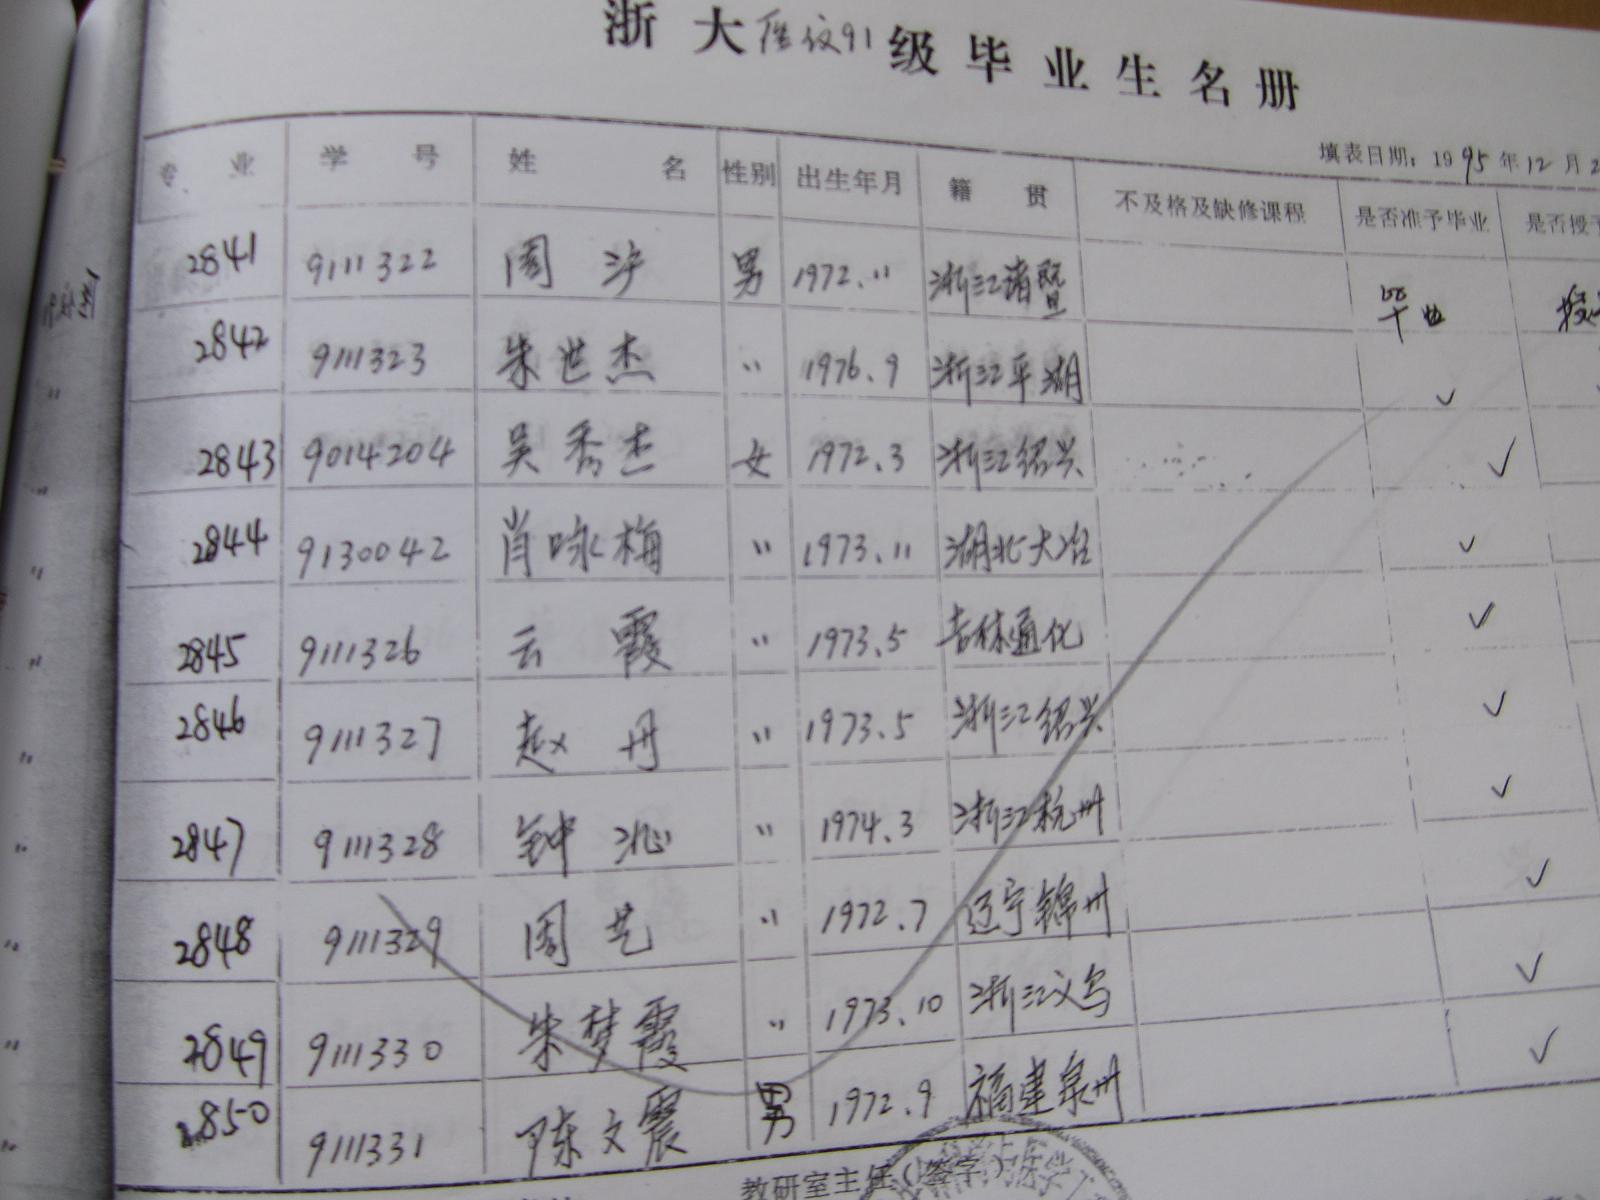 浙大医仪91级毕业生名册
填表日期：1995年12月2
专业 学号 姓名 性别 出生年月 籍贯 不及格及缺修课程 是否准予毕业 是否授予
2841 9111322 周 男 1972.11 浙江诸暨 毕业 授
2842 9111323 朱世杰 〃 1976.9 浙江平湖 ✓
2843 9014204 吴秀杰 女 1972.3 浙江绍兴 ✓
2844 9130042 肖咏梅 〃 1973.11 湖北大冶 ✓
2845 9111326 云霞 〃 1973.5 吉林通化 ✓
2846 9111327 赵丹 〃 1973.5 浙江绍兴 ✓
2847 9111328 钟沁 〃 1974.3 浙江杭州 ✓
2848 9111329 周艺 〃 1972.7 辽宁锦州 ✓
2849 9111330 朱梦霞 〃 1973.10 浙江义乌 ✓
2850 9111331 陈文震 男 1972.9 福建泉州 ✓
教研室主任（签字）